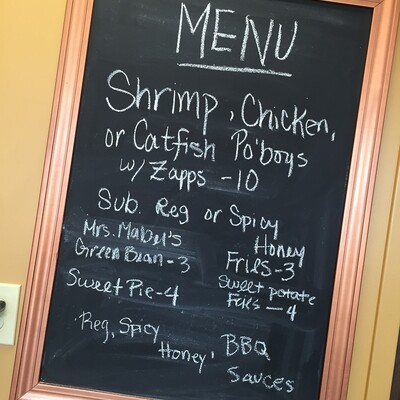 MENU
Shrimp, Chicken,
or Catfish Po'boys
w/ Zapps - 10
Sub. Reg or Spicy
Honey
Mrs. Mabel's
Green Bean - 3
Fries - 3
Sweet Pie - 4
Sweet potato
Fries - 4
Reg, Spicy
Honey,
BBQ
Sauces